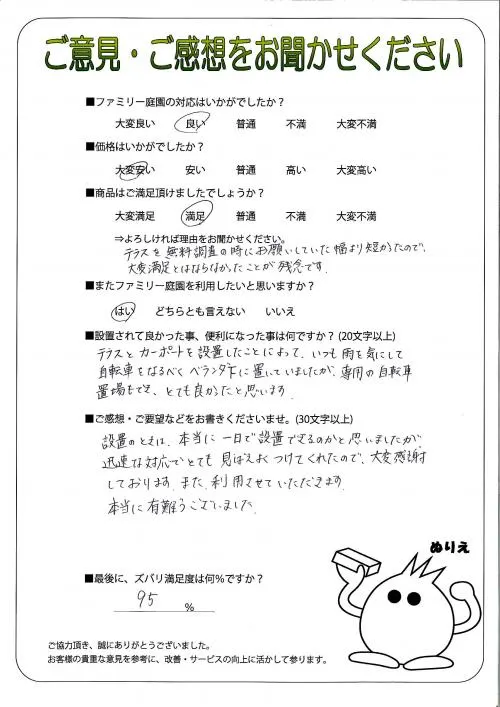 ご意見・ご感想をお聞かせください
■ファミリー庭園の対応はいかがでしたか？
大変良い 良い 普通 不満 大変不満
■価格はいかがでしたか？
大変安い 安い 普通 高い 大変高い
■商品はご満足頂けましたでしょうか？
大変満足 満足 普通 不満 大変不満
⇒よろしければ理由をお聞かせください。
テラスを無料調査の時にお願いしていた幅より短かったので、
大変満足とはならなかったことが残念です。
■またファミリー庭園を利用したいと思いますか？
はい どちらとも言えない いいえ
■設置されて良かった事、便利になった事は何ですか？(20文字以上)
テラスとカーポートを設置したことによって、いつも雨を気にして
自転車をなるべくベランダ下に置いていましたが、専用の自転車
置場もでき、とても良かったと思います。
■ご感想・ご要望などをお書きくださいませ。(30文字以上)
設置のときは、本当に一日で設置できるのかと思いましたが
迅速な対応でとても見ばえよくつけてくれたので、大変感謝
しております。また、利用させていただきます。
本当に有難うございました。
ぬりえ
■最後に、ズバリ満足度は何％ですか？
95 ％
ご協力頂き、誠にありがとうございました。
お客様の貴重な意見を参考に、改善・サービスの向上に活かして参ります。